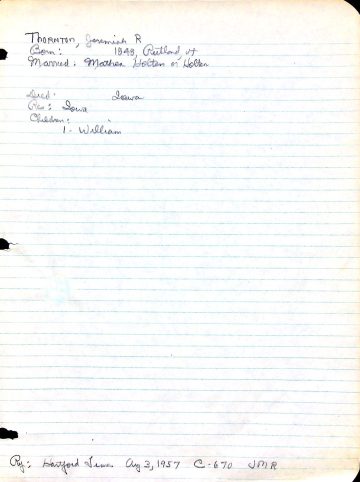 THORNTON, Jeremiah R
Born: 1843, Rutland, Vt
Married: Mather Holten or Holten
Died: Iowa
Res: Iowa
Children:
1. William
Ref: Hartford Times Aug 3, 1957 C-670 JMR